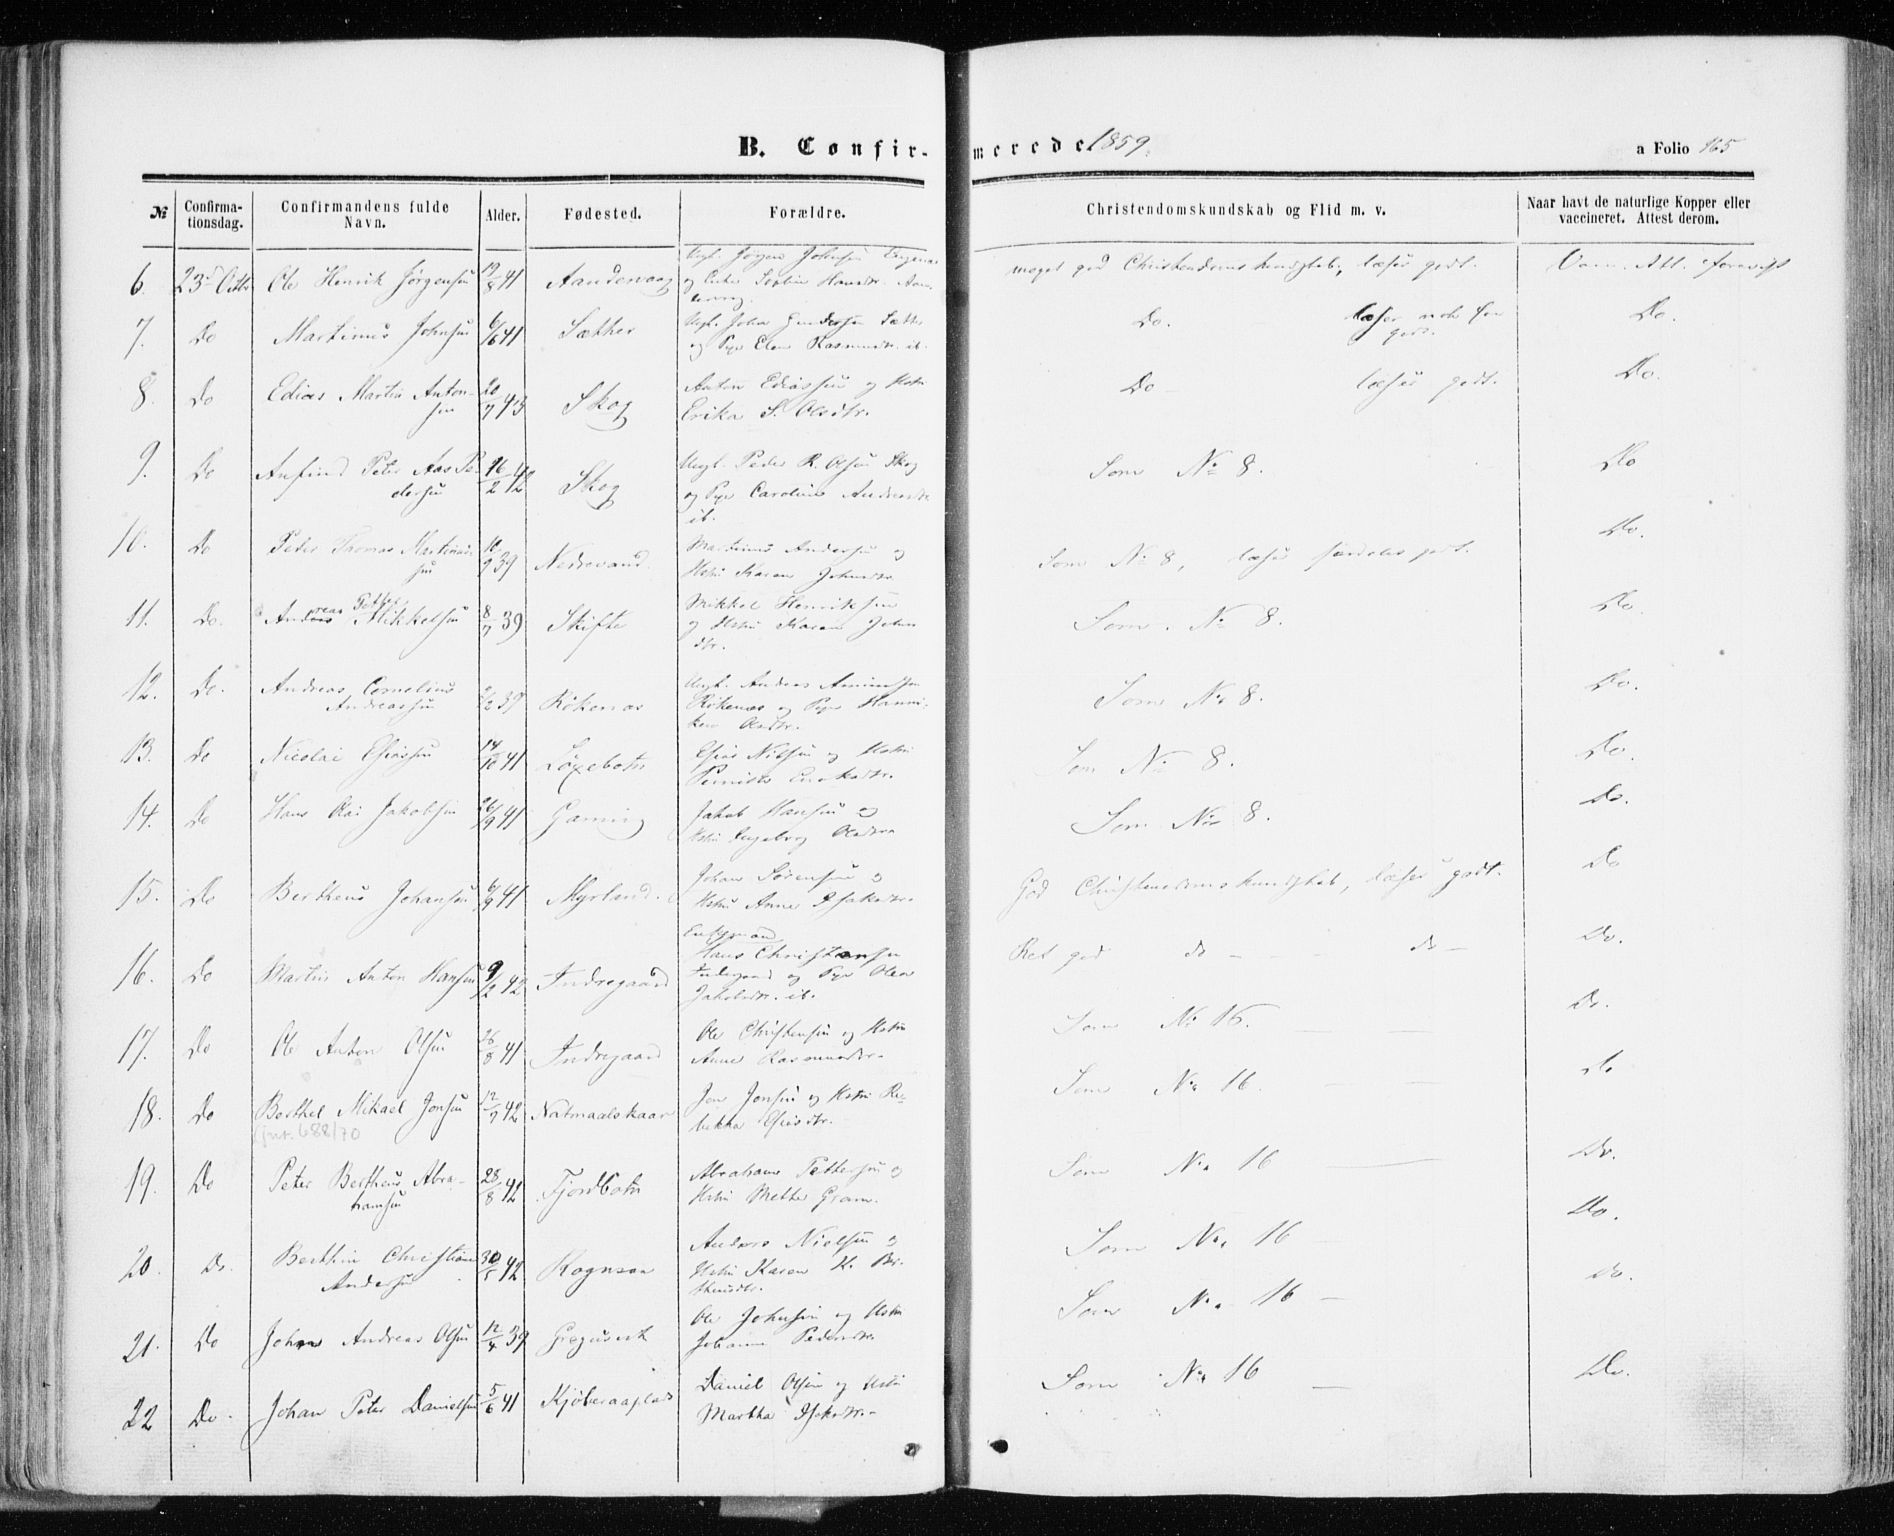 B. Confir-
merede 1859.
a Folio 165
№
Confirma-
tionsdag.
Confirmandens fulde
Navn.
Alder.
Fødested.
Forældre.
Christendomskundskab og Flid m. v.
Naar havt de naturlige Kopper eller
vaccineret. Attest derom.
6. 23d Octbr Ole Henrik Jørgensen 19/8 41 Aandervaag
Ungk. Jørgen Johnsen
og Enke Hansdr.
meget god Christendomskundskab, læser godt.
Vacc. Att. forevist
7. Do Martinus Johnsen 6/6 41 Sæther
Ungk. John Sæther
og Pige Elen Rasmusdr. ib.
Do. læser
godt.
Do.
8. Do Edias Martin Anton-
sen
20/7 43 Skog
Anton Ediassen og Hstru
Erika S. Olsdtr.
Do — læser godt.
Do.
9. Do Anfind Peter Aas Pe-
dersen
16/2 42 Skog
Ungk. Peder R. Olsen Skog
og Pige Caroline Andreasdr
ib.
Som No 8.
Do
10. Do Peder Thomas Martinus-
sen
10/9 39 Nedrevand.
Martinus Andersen og
Hstru Karen Johnsdtr
Som No 8, læser særdeles godt.
Do.
11. Do. Andreas Petter Mikkelsen 8/7 39 Skifte
Mikkel Henriksen
og Hstru Karen Johns
dtr.
Som No 8.
Do.
12. Do. Andreas Cornelius
Andreassen
/2 39 Rökenæs
Ungk. Andreas
Rökenæs og Pige Hanni-
ken Olsdtr.
Som No 8.
Do.
13. Do Nicolai Esiassen 14/10 41 Löxebotn
Esias Nilsen og Hstru
Som No 8.
Do.
14. Do Hans Jakobsen 26/9 41
Jakob Hansen og
Hstru Ingeborg Olsdtr
Som No 8.
Do.
15. Do Bertheus Johansen 6/9 41 Myrland.
Johan Sörensen og
Hstru Anne Isaksdtr.
God Christendomskundskab, læser godt.
Do
16. Do Martin Anton Hansen 9/2 42 Indregaard
Enkemand
Hans Christensen
Indregaard og Pige Olea
Jakobsdtr. ib.
Ret god do — — do —
Do.
17. Do Ole Anton Olsen 26/8 41 Indregaard
Ole Christensen og Hstru
Anne Rasmusdtr.
Som No 16. — —
Do.
18. Do Berthel Mikael Jonsen 12/7 42 Natmaalskaar
(jnr. 688/70
Jon Jonsen og Hstru Re-
bekka Esiasdtr.
Som No 16. —
Do
19. Do Peter Bertheus Abra-
hamsen
28/8 42 Fjordbotn
Abraham Pettersen og
Hstru Mette Gram.
Som No 16 —
Do.
20. Do. Berthin Christian
Andersen
30/5 42
Anders Nielsen og
Hstru Karen K. Ber-
theusdtr.
Som No. 16 —
Do.
21. Do Johan Andreas Olsen 12/4 39
Ole Johnsen og Hstru
Johanne Pedersdtr.
Som No. 16 —
Do.
22 Do. Johan Peter Danielsen 5/6 41
Daniel Olsen og Hstru
Martha Isaksdtr.
Som No 16 —
Do.